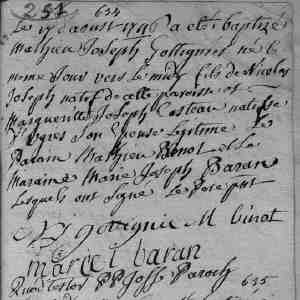 257 634
Le 17 d'aoust 1796 a eté baptizé
Mathieu Joseph Gottignies né le
meme Jour vers le midy fils de Nicolas
Joseph natif de cette paroisse et
Marguerite Joseph Casteau native de
Son Epouse Legitime Le
Parain Mathieu Binot et la
Maraine Marie Joseph Baran
Lesquels ont signé Le Pere
N J gotignie M binot
marcel baran
quod testor PP Joffe Paroch
635